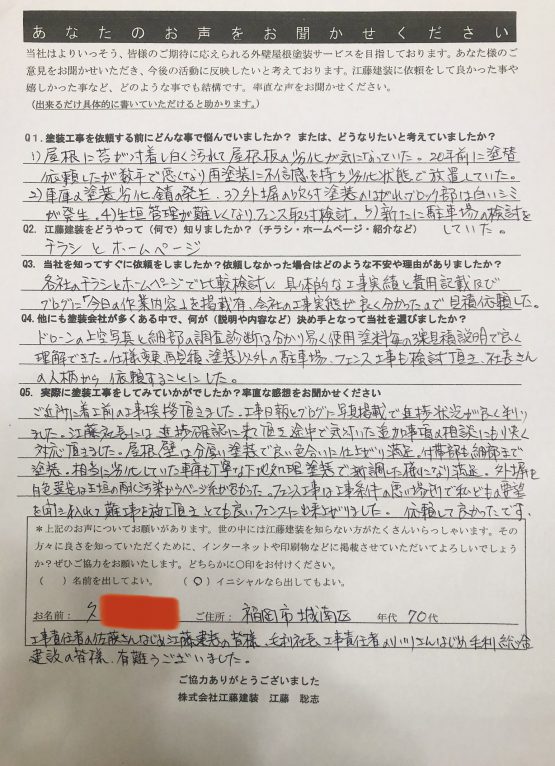 あなたのお声をお聞かせください
当社はよりいっそう、皆様のご期待に応えられる外壁屋根塗装サービスを目指しております。あなた様のご
意見をお聞かせいただき、今後の活動に反映したいと考えております。江藤建装に依頼をして良かった事や
嬉しかった事など、どのような事でも結構です。率直な声をお聞かせください。
(出来るだけ具体的に書いていただけると助かります。)
Q1. 塗装工事を依頼する前にどんな事で悩んでいましたか? または、どうなりたいと考えていましたか?
1)屋根に苔が付着し白く汚れて屋根板の劣化が気になっていた。20年前に塗替
依頼したが数年で悪くなり再塗装に不信感を持ち劣化状態で放置していた。
2)車庫の塗装劣化、錆の発生 3)外塀の吹付塗装のはがれブロック部は白いシミ
が発生。4)生垣管理が難しくなりフェンス取付検討。5)新たに駐車場の検討を
していた。
Q2. 江藤建装をどうやって(何で)知りましたか?(チラシ・ホームページ・紹介など)
チラシとホームページ
Q3. 当社を知ってすぐに依頼をしましたか?依頼しなかった場合はどのような不安や理由がありましたか?
各社のチラシとホームページで比較検討し、具体的な工事実績と費用記載及び
ブログに「今日の作業内容」を掲載有、会社の工事実態が良く分かったので見積依頼した。
Q4. 他にも塗装会社が多くある中で、何が(説明や内容など)決め手となって当社を選びましたか?
ドローンの上空写真と細部の調査診断は分かり易く使用塗料毎の見積説明で良く
理解できた。仕様変更再見積、塗装以外の駐車場、フェンス工事も検討頂き、社長さん
の人柄から依頼することにした。
Q5. 実際に塗装工事をしてみていかがでしたか?率直な感想をお聞かせください
ご近所に着工前の工事挨拶頂きました。工事日報とブログに写真掲載で進捗状況が良く判り
ました。江藤社長には進捗確認に来て頂き途中で気付いた追加事項の相談にも快く
対応頂きました。屋根、壁は今度い塗装で良い色合いに仕上がり満足。付帯部も細部まで
塗装。相当に劣化していた車庫も丁寧な下地処理塗装で新調した様になり満足。外塀を
白色選定は土垣の汚染からベージュ系が良かった。フェンス工事は工事条件の悪い場所で私どもの要望
を聞き入れ難工事を施工頂きとても良いフェンスに出来上がりました。依頼して良かったです。
*上記のお声についてお願いがあります。世の中には江藤建装を知らない方がたくさんいらっしゃいます。その
方々に良さを知っていただくために、インターネットや印刷物などに掲載させていただいてよろしいでしょう
か?ぜひご協力をお願いします。どちらかに○印をお付けください。
( )名前を出してよい。 (○)イニシャルなら出してもよい。
お名前: 久 ご住所: 福岡市城南区 年代 70代
工事責任者の佐藤さんはじめ江藤建装の皆様、毛利社長、工事責任者の小川さんはじめ毛利総合
建設の皆様、有難うございました。
ご協力ありがとうございました
株式会社江藤建装 江藤 聡志